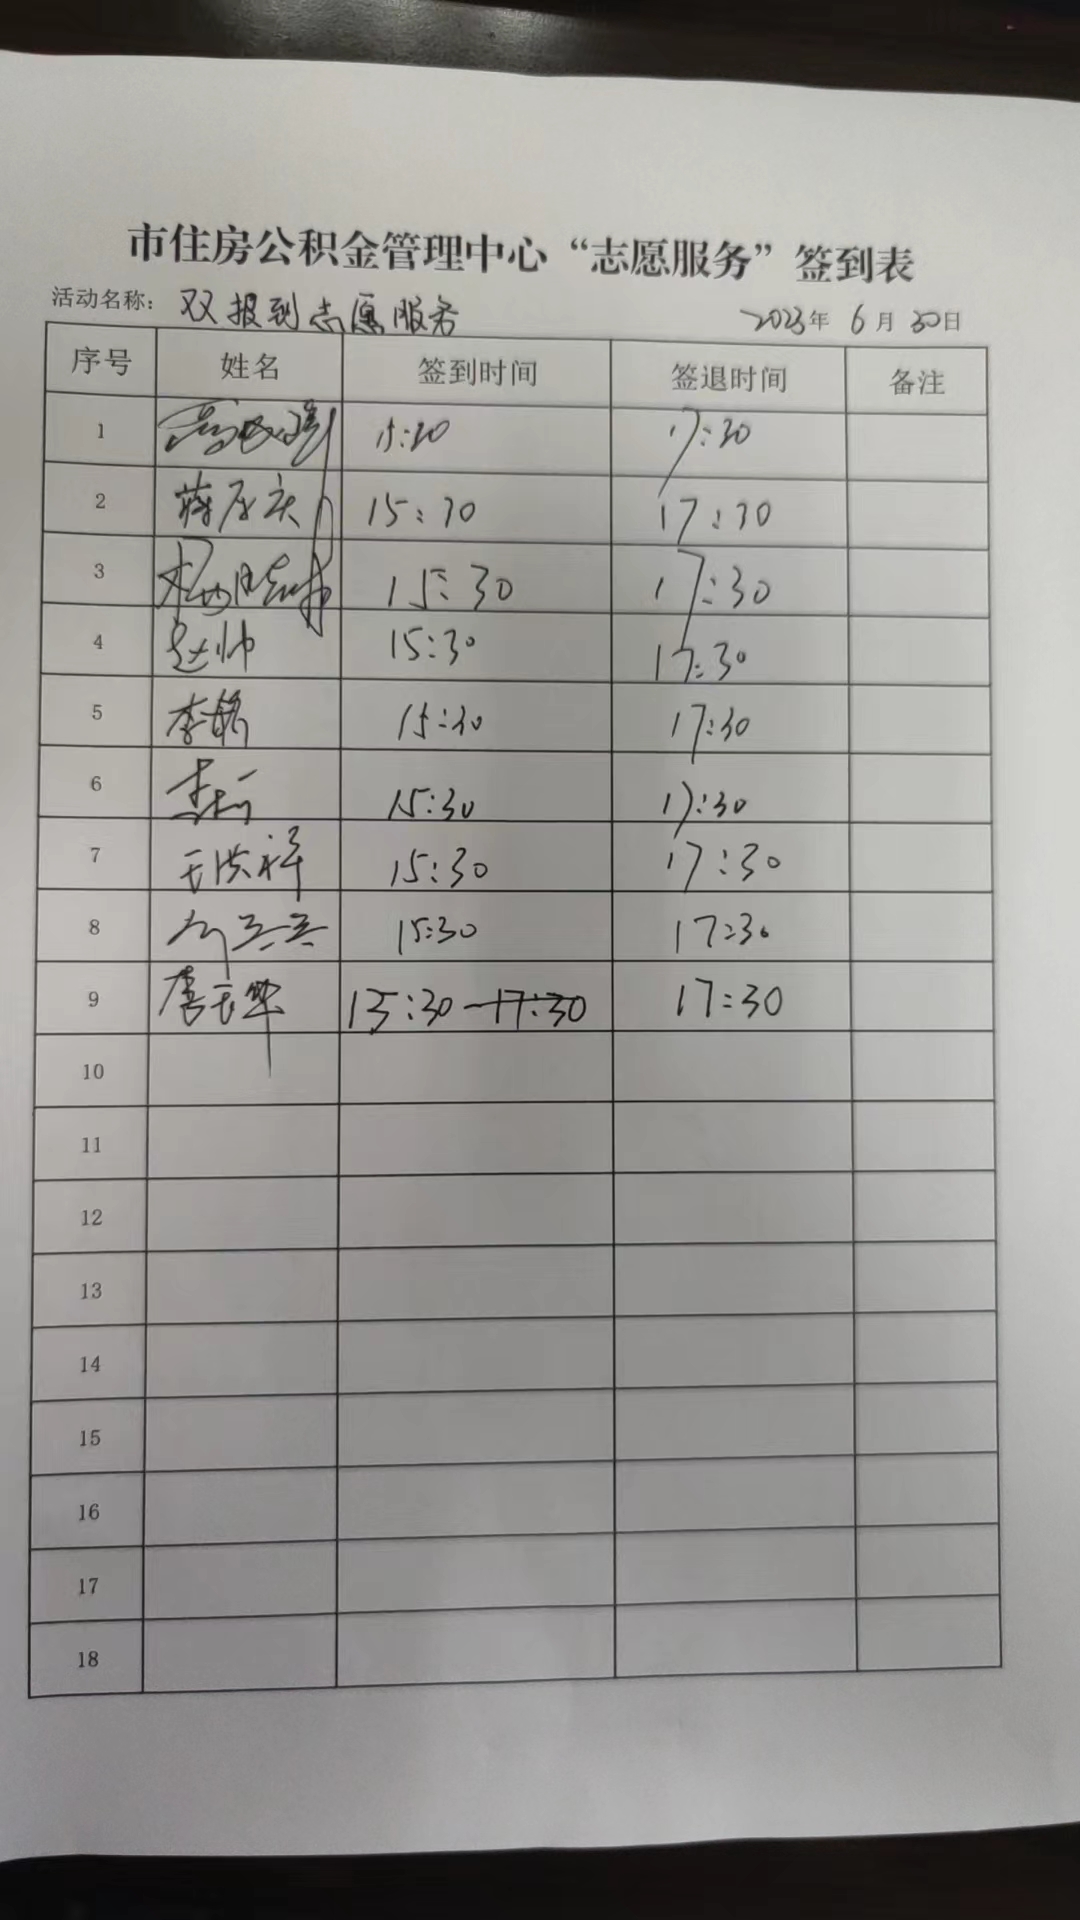 市住房公积金管理中心“志愿服务”签到表
活动名称：双报到志愿服务 2023年 6月 30日
序号 姓名 签到时间 签退时间 备注
1 15:30 17:30
2 蒋库庆 15:30 17:30
3 杨晓梅 15:30 17:30
4 赵帅 15:30 17:30
5 李铭 15:30 17:30
6 15:30 17:30
7 王洪祥 15:30 17:30
8 15:30 17:30
9 唐玉华 15:30-17:30 17:30
10
11
12
13
14
15
16
17
18